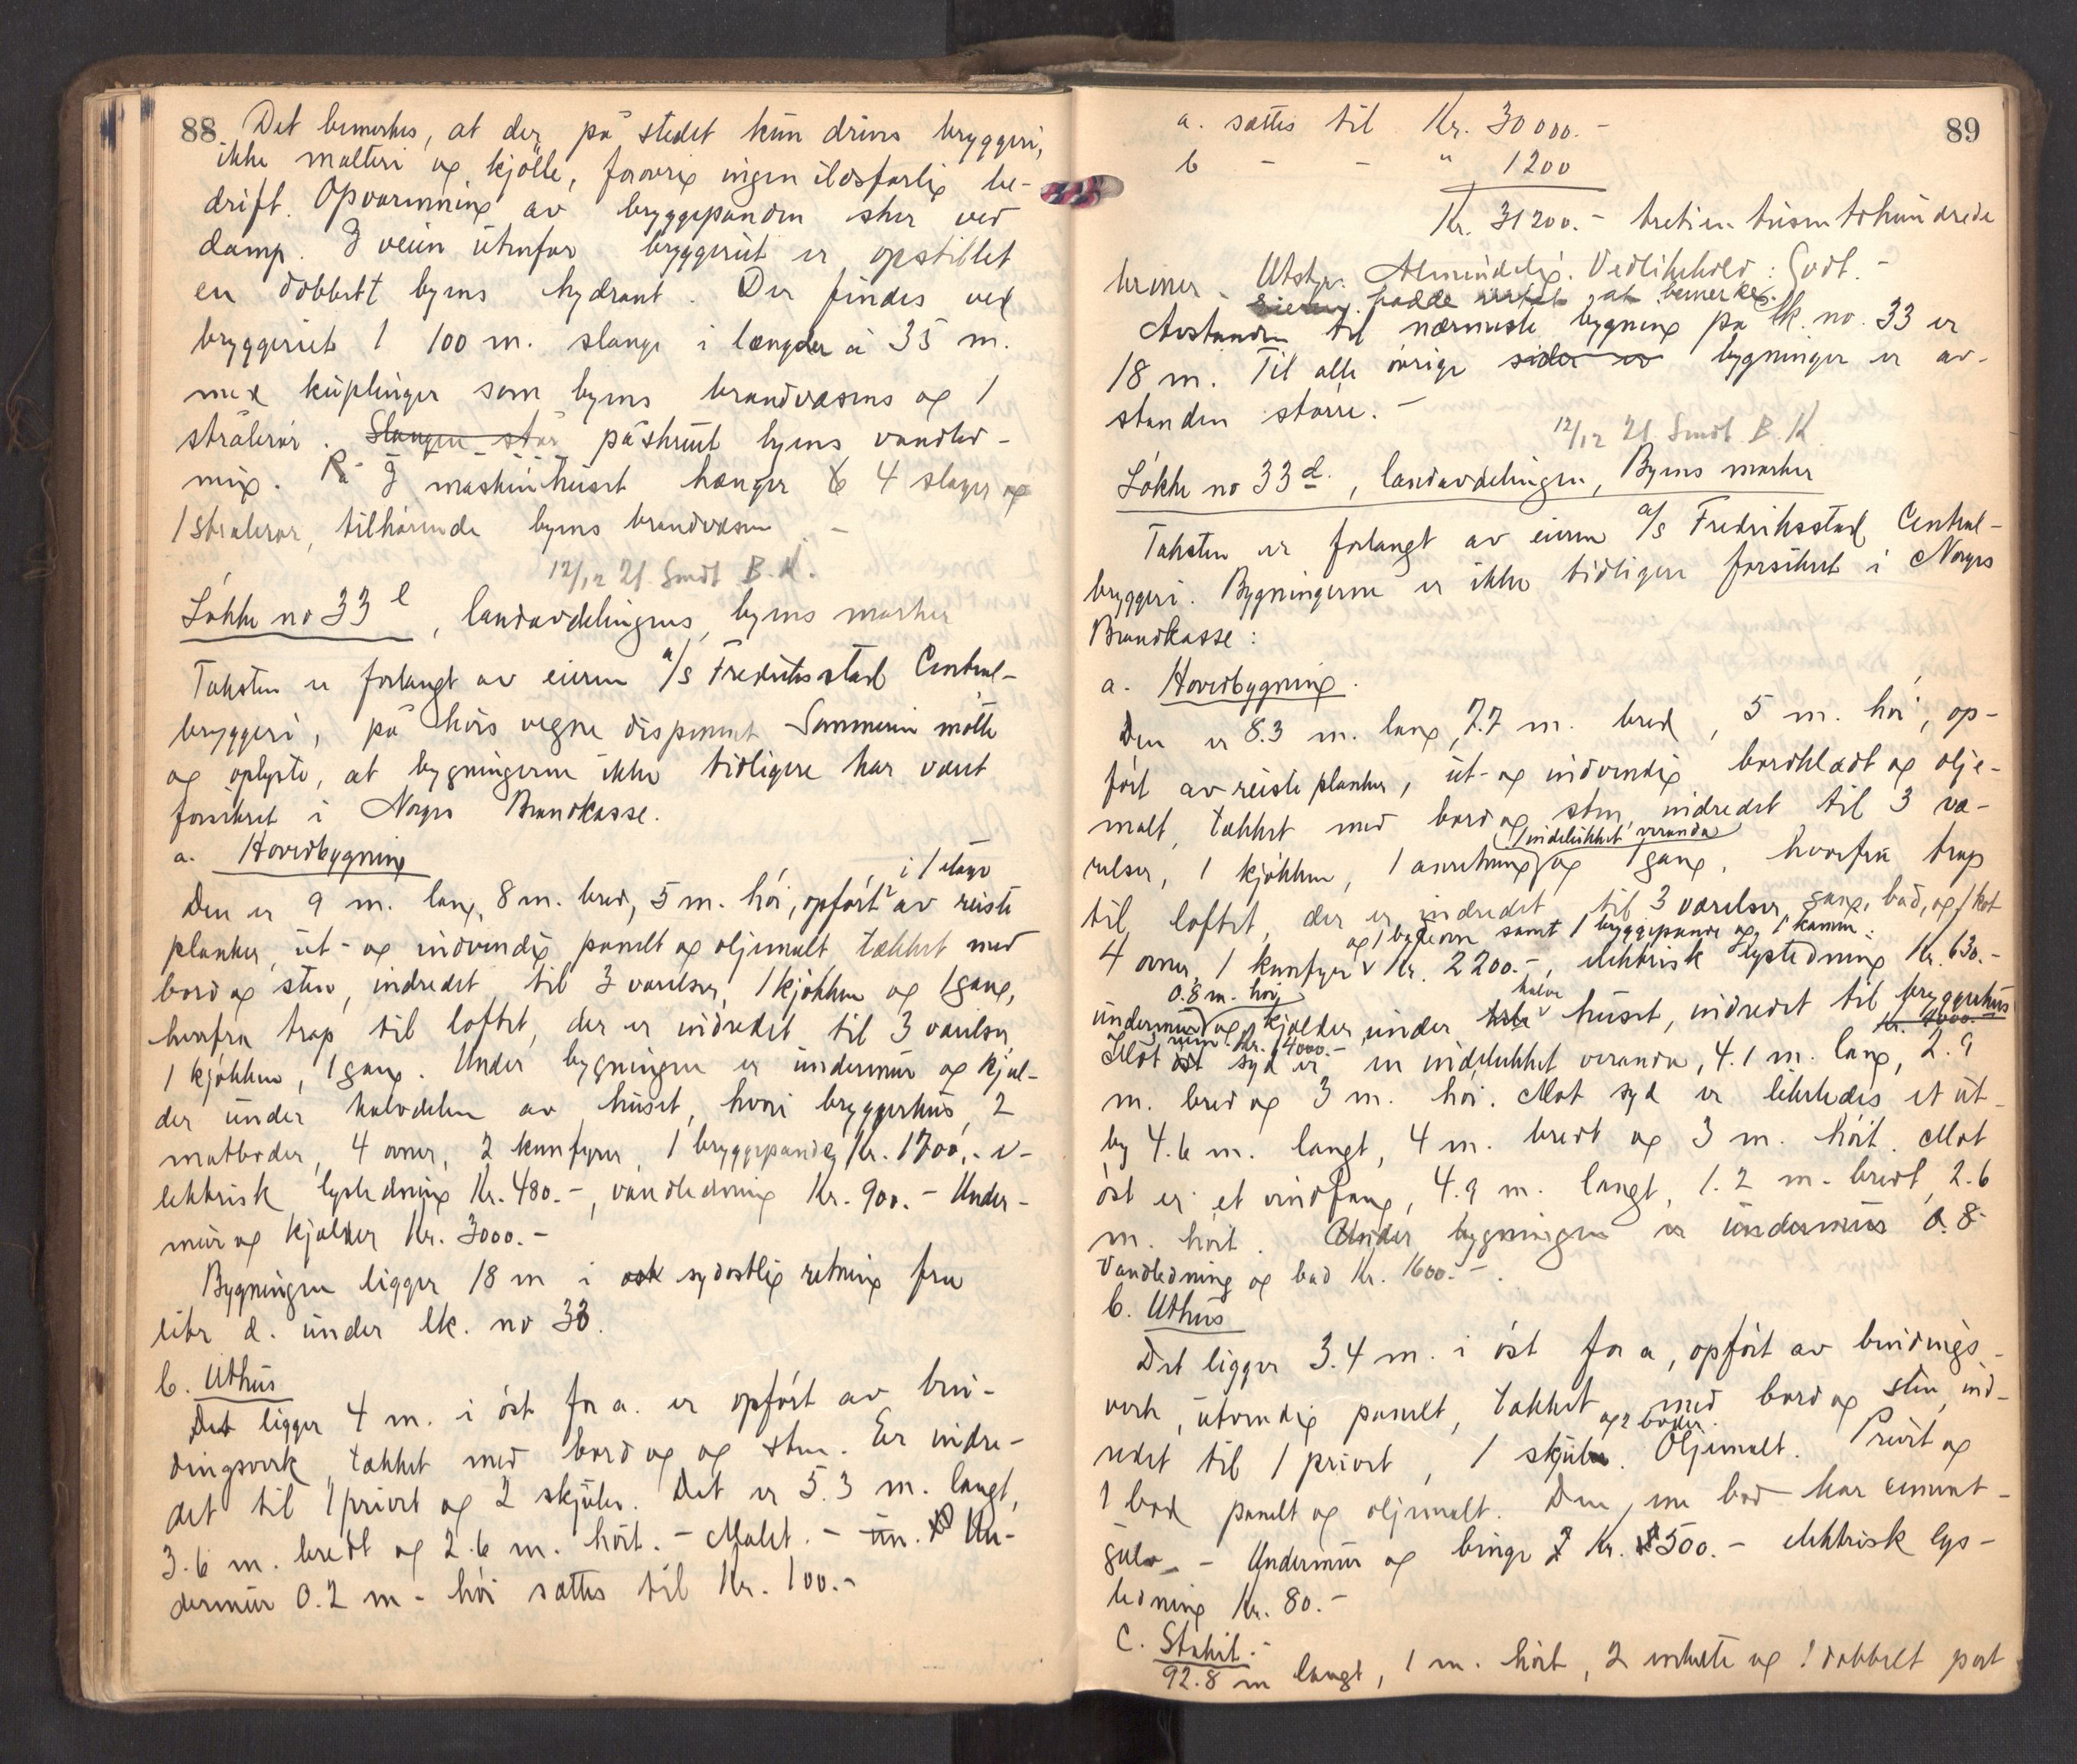 88
Det bemerkes, at der på stedet kun drives bryggeri,
ikke malteri og kjölle, forøvrig ingen ildsfarlig be-
drift. Opvarmning av bryggepanden sker ved
damp. I veien utenfor bryggeriet er opstillet
en dobbelt byens hydrant. Der findes ved
bryggeriet 1 100 m. slange i længder á 35 m.
med kuplinger som byens brandvæsens og 1
strålerør. Slangen står påskruet byens vandled-
ning. På I maskinhuset hænger 6 4 slager og
1 strålerør, tilhørende byens brandvæsen –
12/12 21. Sendt B.K.
Løkke no 33 l, landavdelingens, byens marker
Taksten er forlangt av eieren a/s Fredriksstad Central-
bryggeri, på hvis vegne disponent Sammerin møtte
og oplyste, at bygningerne ikke tidligere har vært
forsikret i Norges Brandkasse.
a. Hovedbygning
i 1 etage
Den er 9 m. lang, 8 m. bred, 5 m. høi, opført av reiste
planker, ut- og indvendig panelt og oljemalt tækket med
bord og sten, indredet til 3 værelser, 1 kjøkken og 1 gang,
hvorfra trap til loftet, der er indredet til 3 værelser,
1 kjøkken, 1 gang. Under bygningen er undermur og kjæl-
der under halvdelen av huset, hvori bryggerhus, 2
matboder, 4 ovner, 2 komfyrer, 1 bryggepande Kr. 1700,- e-
lektrisk lysledning Kr. 480.-, vandledning Kr. 900.- Under-
mur og kjælder Kr. 3000.-
Bygningen ligger 18 m i øst sydøstlig retning fra
litr d. under lk. no 33.
b. Uthus
Det ligger 4 m. i øst for a. er opført av bin-
dingsverk, tækket med bord og og sten. Er indre-
det til 1 privet og 2 skjuler. Det er 5.3 m. langt,
3.6 m. bredt og 2.6 m. høit. - Malet. - Un-
dermur 0.2 m - høi sættes til Kr. 100.-
89
a. sættes til Kr. 30000.-
b - - " 1200
Kr. 31200.- trettien tusen tohundrede
kroner. Utstyr: Almindelig. Vedlikehold: Godt.-
hadde intet at bemerke.
Avstanden til nærmeste bygning på lk. no. 33 er
18 m. Til alle øvrige sider av bygninger er av-
standen større. -
12/12 21 Sendt B.K.
Løkke no 33 d., landavdelingen, Byens marker
Taksten er forlangt av eieren a/s Fredriksstad Central-
bryggeri. Bygningerne er ikke tidligere forsikret i Norges
Brandkasse:
a. Hovedbygning.
Den er 8.3 m. lang, 7.7 m. bred, 5 m. høi, op-
ført av reiste planker, ut- og indvendig bordklædt og olje-
malt, tækket med bord og sten, indredet til 3 væ-
1 indelukket veranda
relser, 1 kjøkken, 1 anretning og 1 gang, hvorfra trap
til loftet, der er indredet til 3 værelser, gang, bad, og 1 kot
og 1 badeovn samt 1 bryggepande og 1 kamin:
4 ovner, 1 komfyr Kr. 2200.-, elektrisk lysledning Kr. 630.-
0.8 m. høi halve
undermur og kjælder under hele huset, indredet til bryggerhus
Kr. 4000.- Kr. 4000.-
Mot øst syd er en indelukket veranda, 4.1 m. lang, 2.9
m. bred og 3 m. høi. Mot syd er likeledes et ut-
by 4.6 m. langt, 4 m. bredt og 3 m. høit. Mot
øst er et vindfang, 4.9 m. langt, 1.2 m. bredt, 2.6
m. høit. Under bygningen er undermur 0.8
Vandledning og bad Kr. 1600.-
b. Uthus
Det ligger 3.4 m. i øst for a, opført av bindings-
verk, utvendig panelt, tækket med bord og sten, ind-
og 2 boder.
redet til 1 privet, 1 skjul. Oljemalt. Privet og
1 bod panelt og oljemalt. Den ene bod har cement-
gulv. - Undermur og binge Kr. 500.- elektrisk lys-
ledning Kr. 80.-
C. Stakit.-
92.8 m langt, 1 m. høit, 2 enkelte og 1 dobbelt port